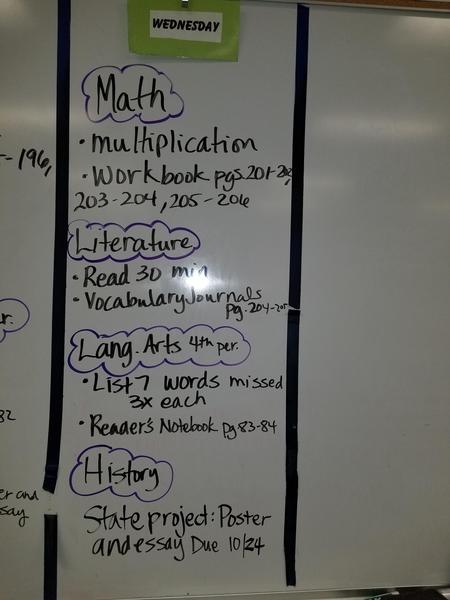 WEDNESDAY
Math
• multiplication
• Workbook pgs. 201-202
203-204, 205-206
Literature
• Read 30 min
• Vocabulary Journals
pg. 204-205
Lang. Arts 4th per.
• List 7 words missed
3x each
• Reader's Notebook pg 83-84
History
State project: Poster
and essay Due 10/24
- 196,
r.
82
er and
say